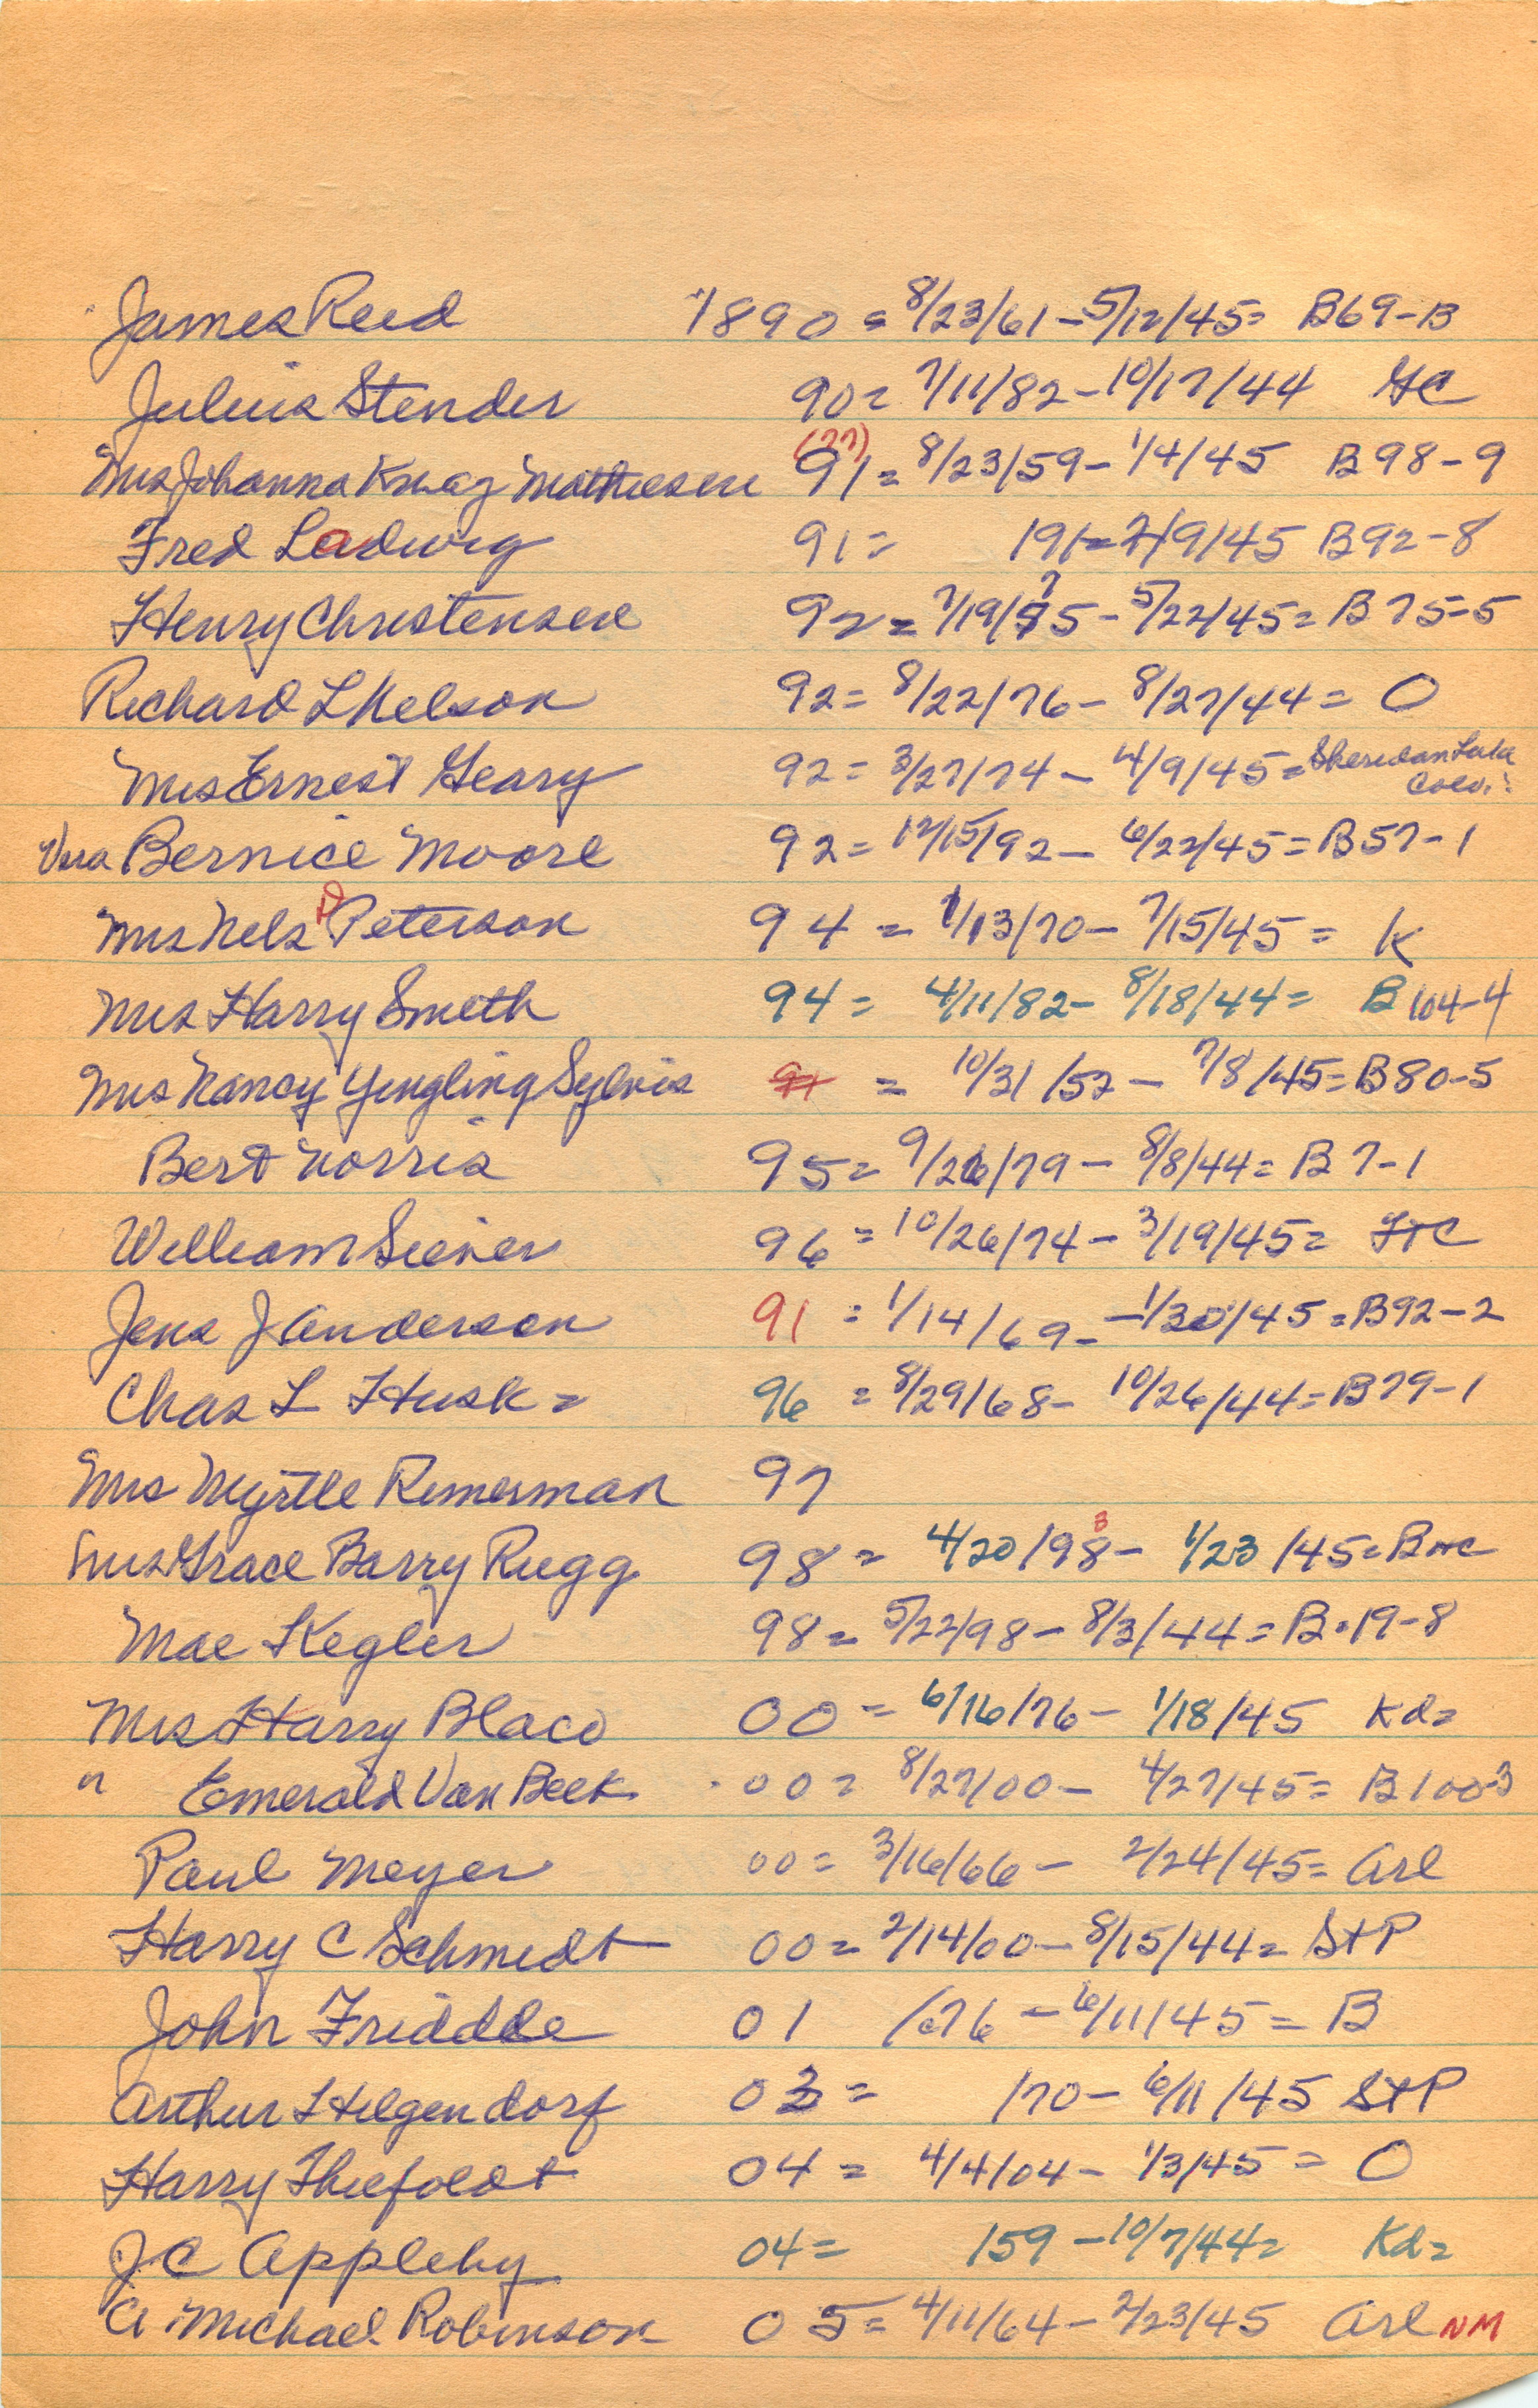 James Reed 1890 = 8/23/61 - 5/12/45 = B69-B
Julius Stender 90 = 7/11/82 - 10/17/44 GC
(77)
Mrs Johanna Mathiesen 91 = 8/23/59 - 1/4/45 B98-9
Fred Ladwig 91 = 191 2/9/45 B92-8
Henry Christensen 92 = 7/19/75 - 5/22/45 = B75-5
Richard L Nelson 92 = 8/22/76 - 8/27/44 = O
Mrs Ernest Geary 92 = 3/27/74 - 4/9/45 = Sheridan Lake
Colo.
Vera Bernice Moore 92 = 12/15/92 - 6/22/45 = B57-1
Mrs Nels P Peterson 94 = 1/13/70 - 7/15/45 = K
Mrs Harry Smith 94 = 4/11/82 - 8/18/44 = B104-4
Mrs Nancy Yengling Sylvis = 10/31/57 - 7/8/45 = B80-5
Bert Norris 95 = 9/26/79 - 8/8/44 = B7-1
William Siever 96 = 10/26/74 - 3/19/45 =
Jens J Anderson 91 = 1/14/69 - 1/30/45 = B92-2
Chas L Husk = 96 = 8/29/68 - 10/26/44 = B79-1
Mrs Myrtle Rimerman 97
Mrs Grace Barry Rugg 98 = 4/20/98 3 - 1/23/45 =
Mae Kegler 98 = 5/22/98 - 8/3/44 = B-19-8
Mrs Harry Blaco 00 = 6/16/76 - 1/18/45 Kd =
" Emerald Van Beek 00 = 8/27/00 - 4/27/45 = B100-3
Paul Meyer 00 = 3/16/66 - 2/24/45 = Arl
Harry C Schmidt 00 = 2/14/00 - 8/15/44 = StP
John Friddle 01 /76 - 6/11/45 = B
Arthur Hilgendorf 03 = /70 - 6/11/45 StP
Harry Thiefoldt 04 = 4/4/04 - 1/3/45 = O
J C Appleby 04 = 159 - 10/7/44 = Kd =
A Michael Robinson 05 = 4/11/64 - 2/23/45 Arl NM